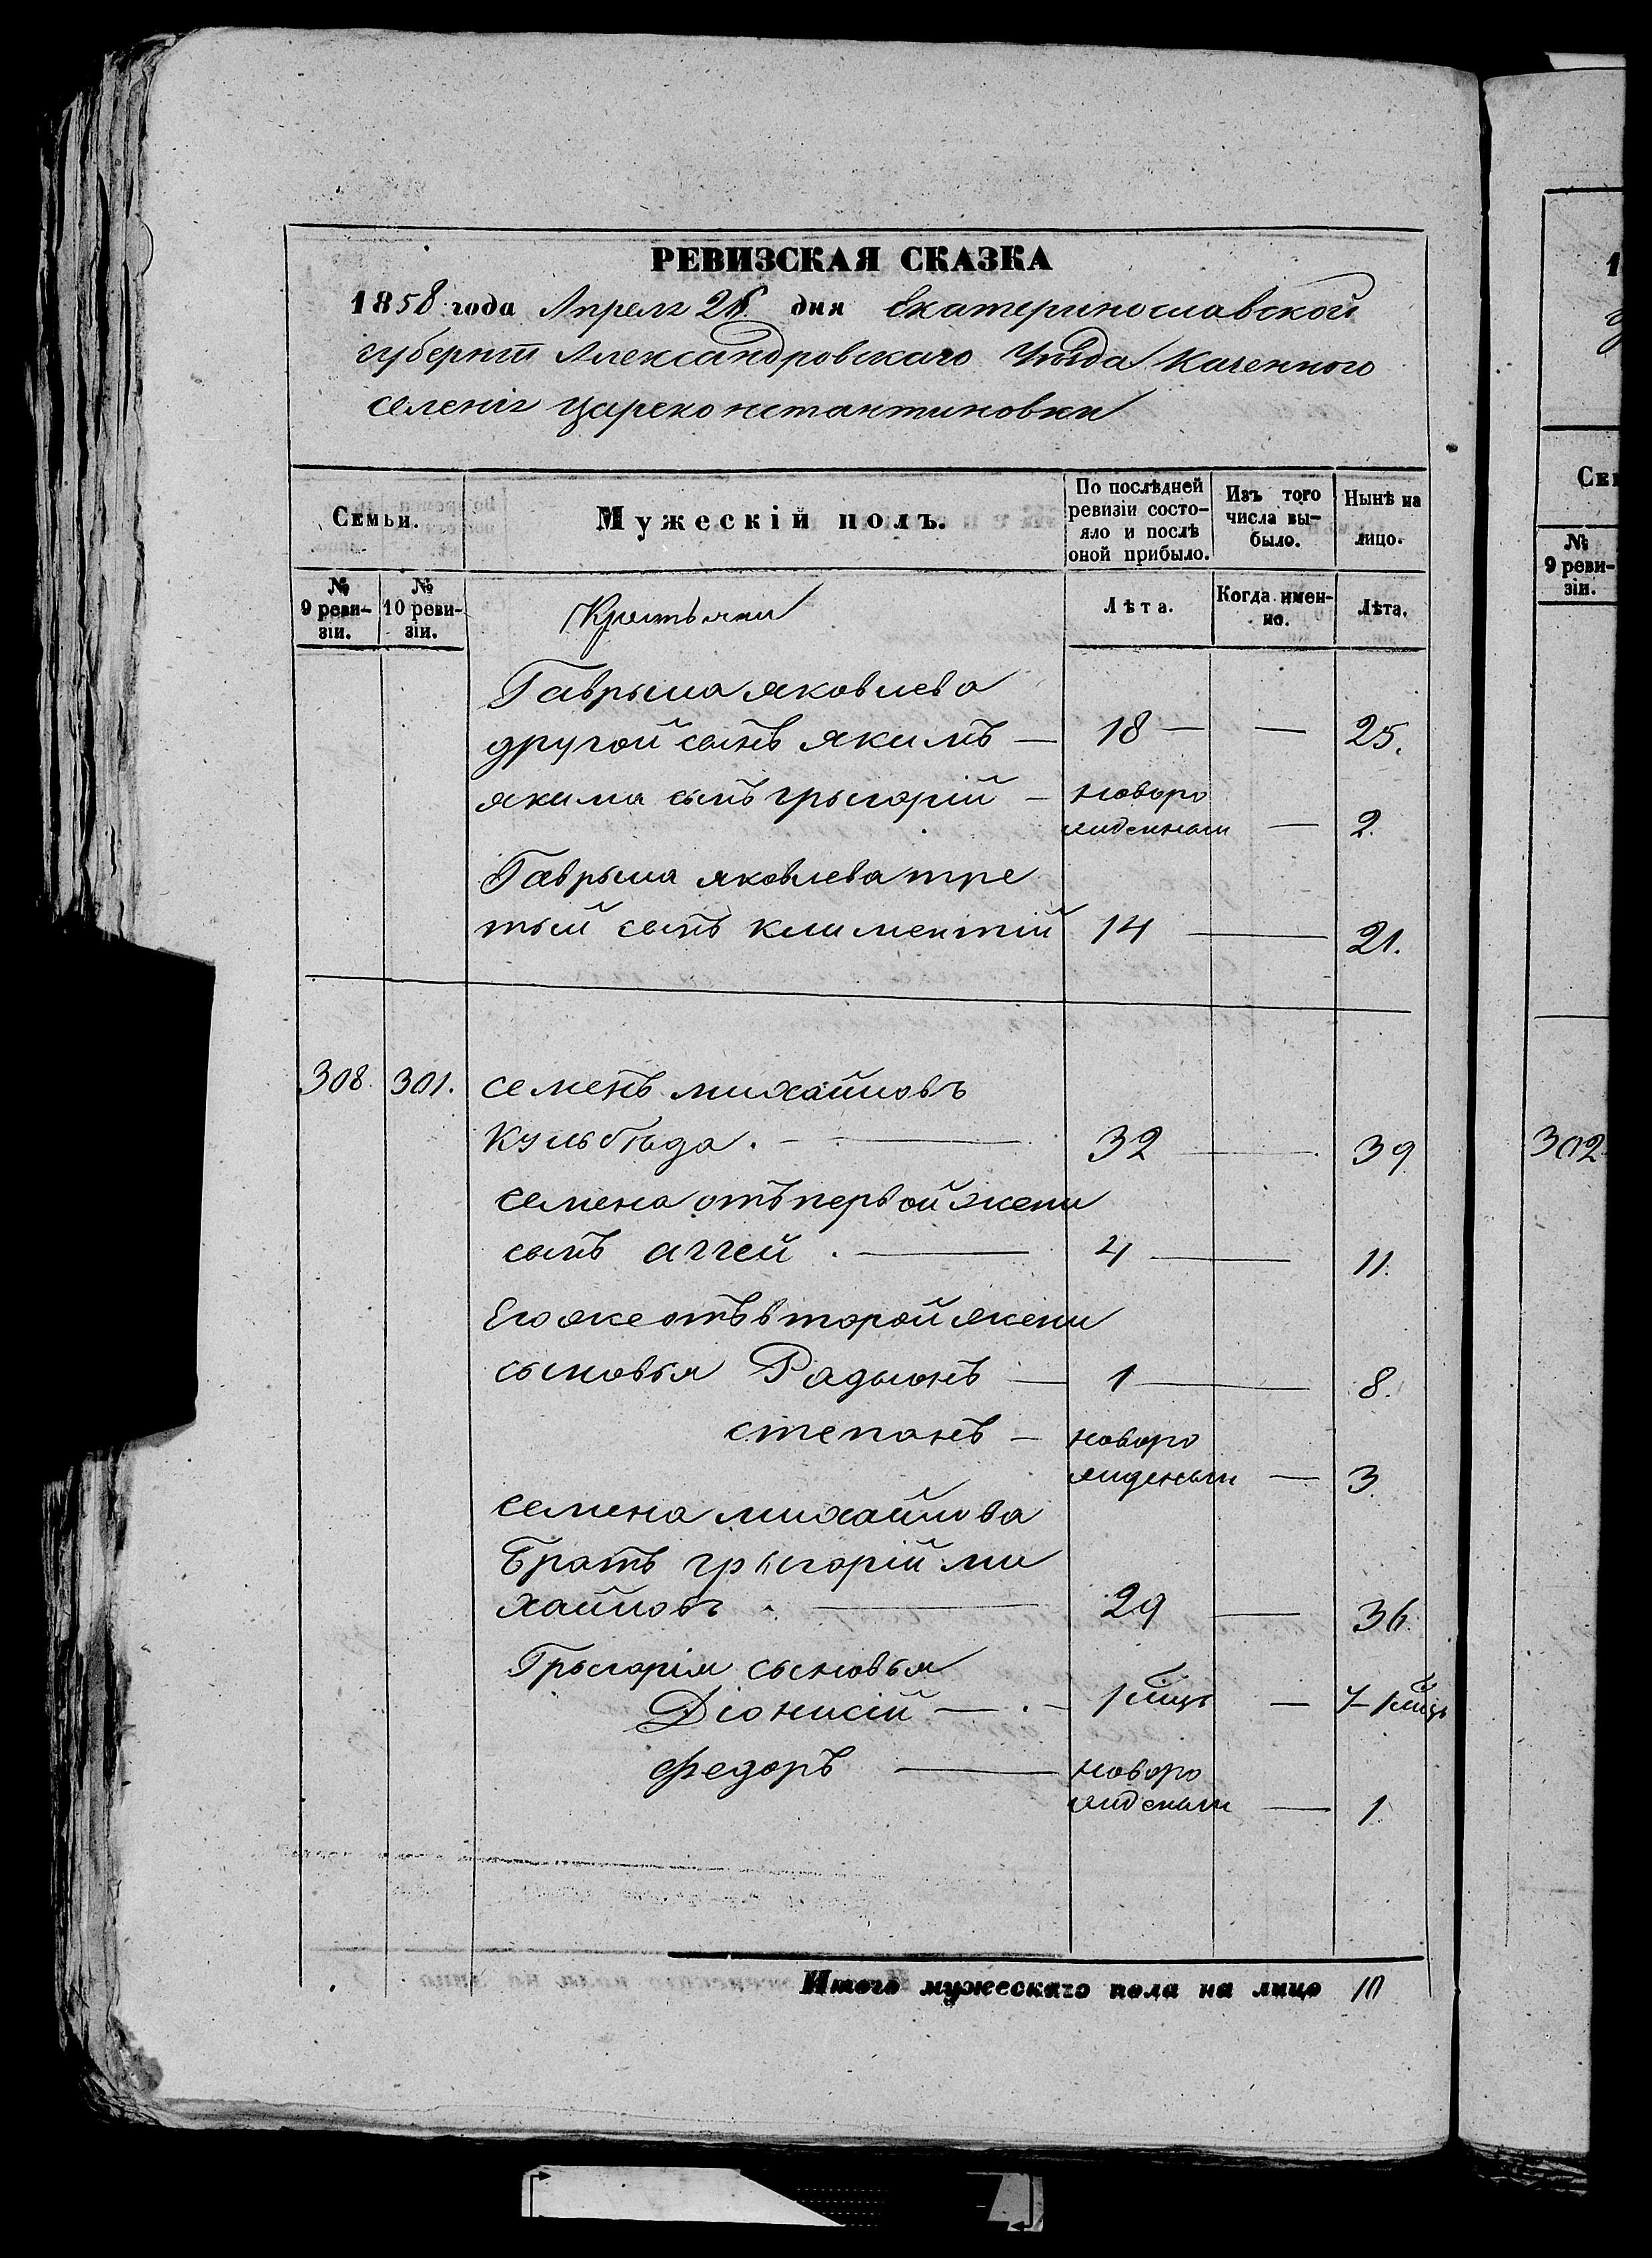 РЕВИЗСКАЯ СКАЗКА
1858 года Апреля 26 дня Екатеринославской
губерніи Александровскаго Уѣзда Казенного
селенія Цареконстантиновки
Семьи.
Мужескій полъ.
По послѣдней
ревизіи состо-
яло и послѣ
оной прибыло.
Изъ того
числа вы-
было.
Нынѣ на
лицо.
№
9 реви-
зіи.
№
10 реви-
зіи.
Крестьяни
Лѣта.
Когда имен-
но.
Лѣта.
Гаврыла яковлева
другой сынъ якимъ — 18 — — 25.
якима сынъ грыгорій — новоро
жиденный — 2.
Гаврыла яковлева тре
тый сынъ климентій 14 — 21.
308. 301. семенъ михайловъ
Кульбѣда. — 32 — 39
семена отъ первой жени
сынъ аггей. — 4 — 11.
Его же отъ второй жени
сыновья Радыонъ — 1 — 8.
степанъ — новоро
жиденый — 3.
семена михайлова
Братъ грыгорій ми
хайловъ. — 29 — 36.
Грыгорія сыновья
Діонисій — . — 1 мѣцъ — 7 1 мѣцъ
федоръ — новоро
жиденый — 1.
Итого мужескаго пола на лицо 10
1
Сем
№
9 реви-
зіи.
302